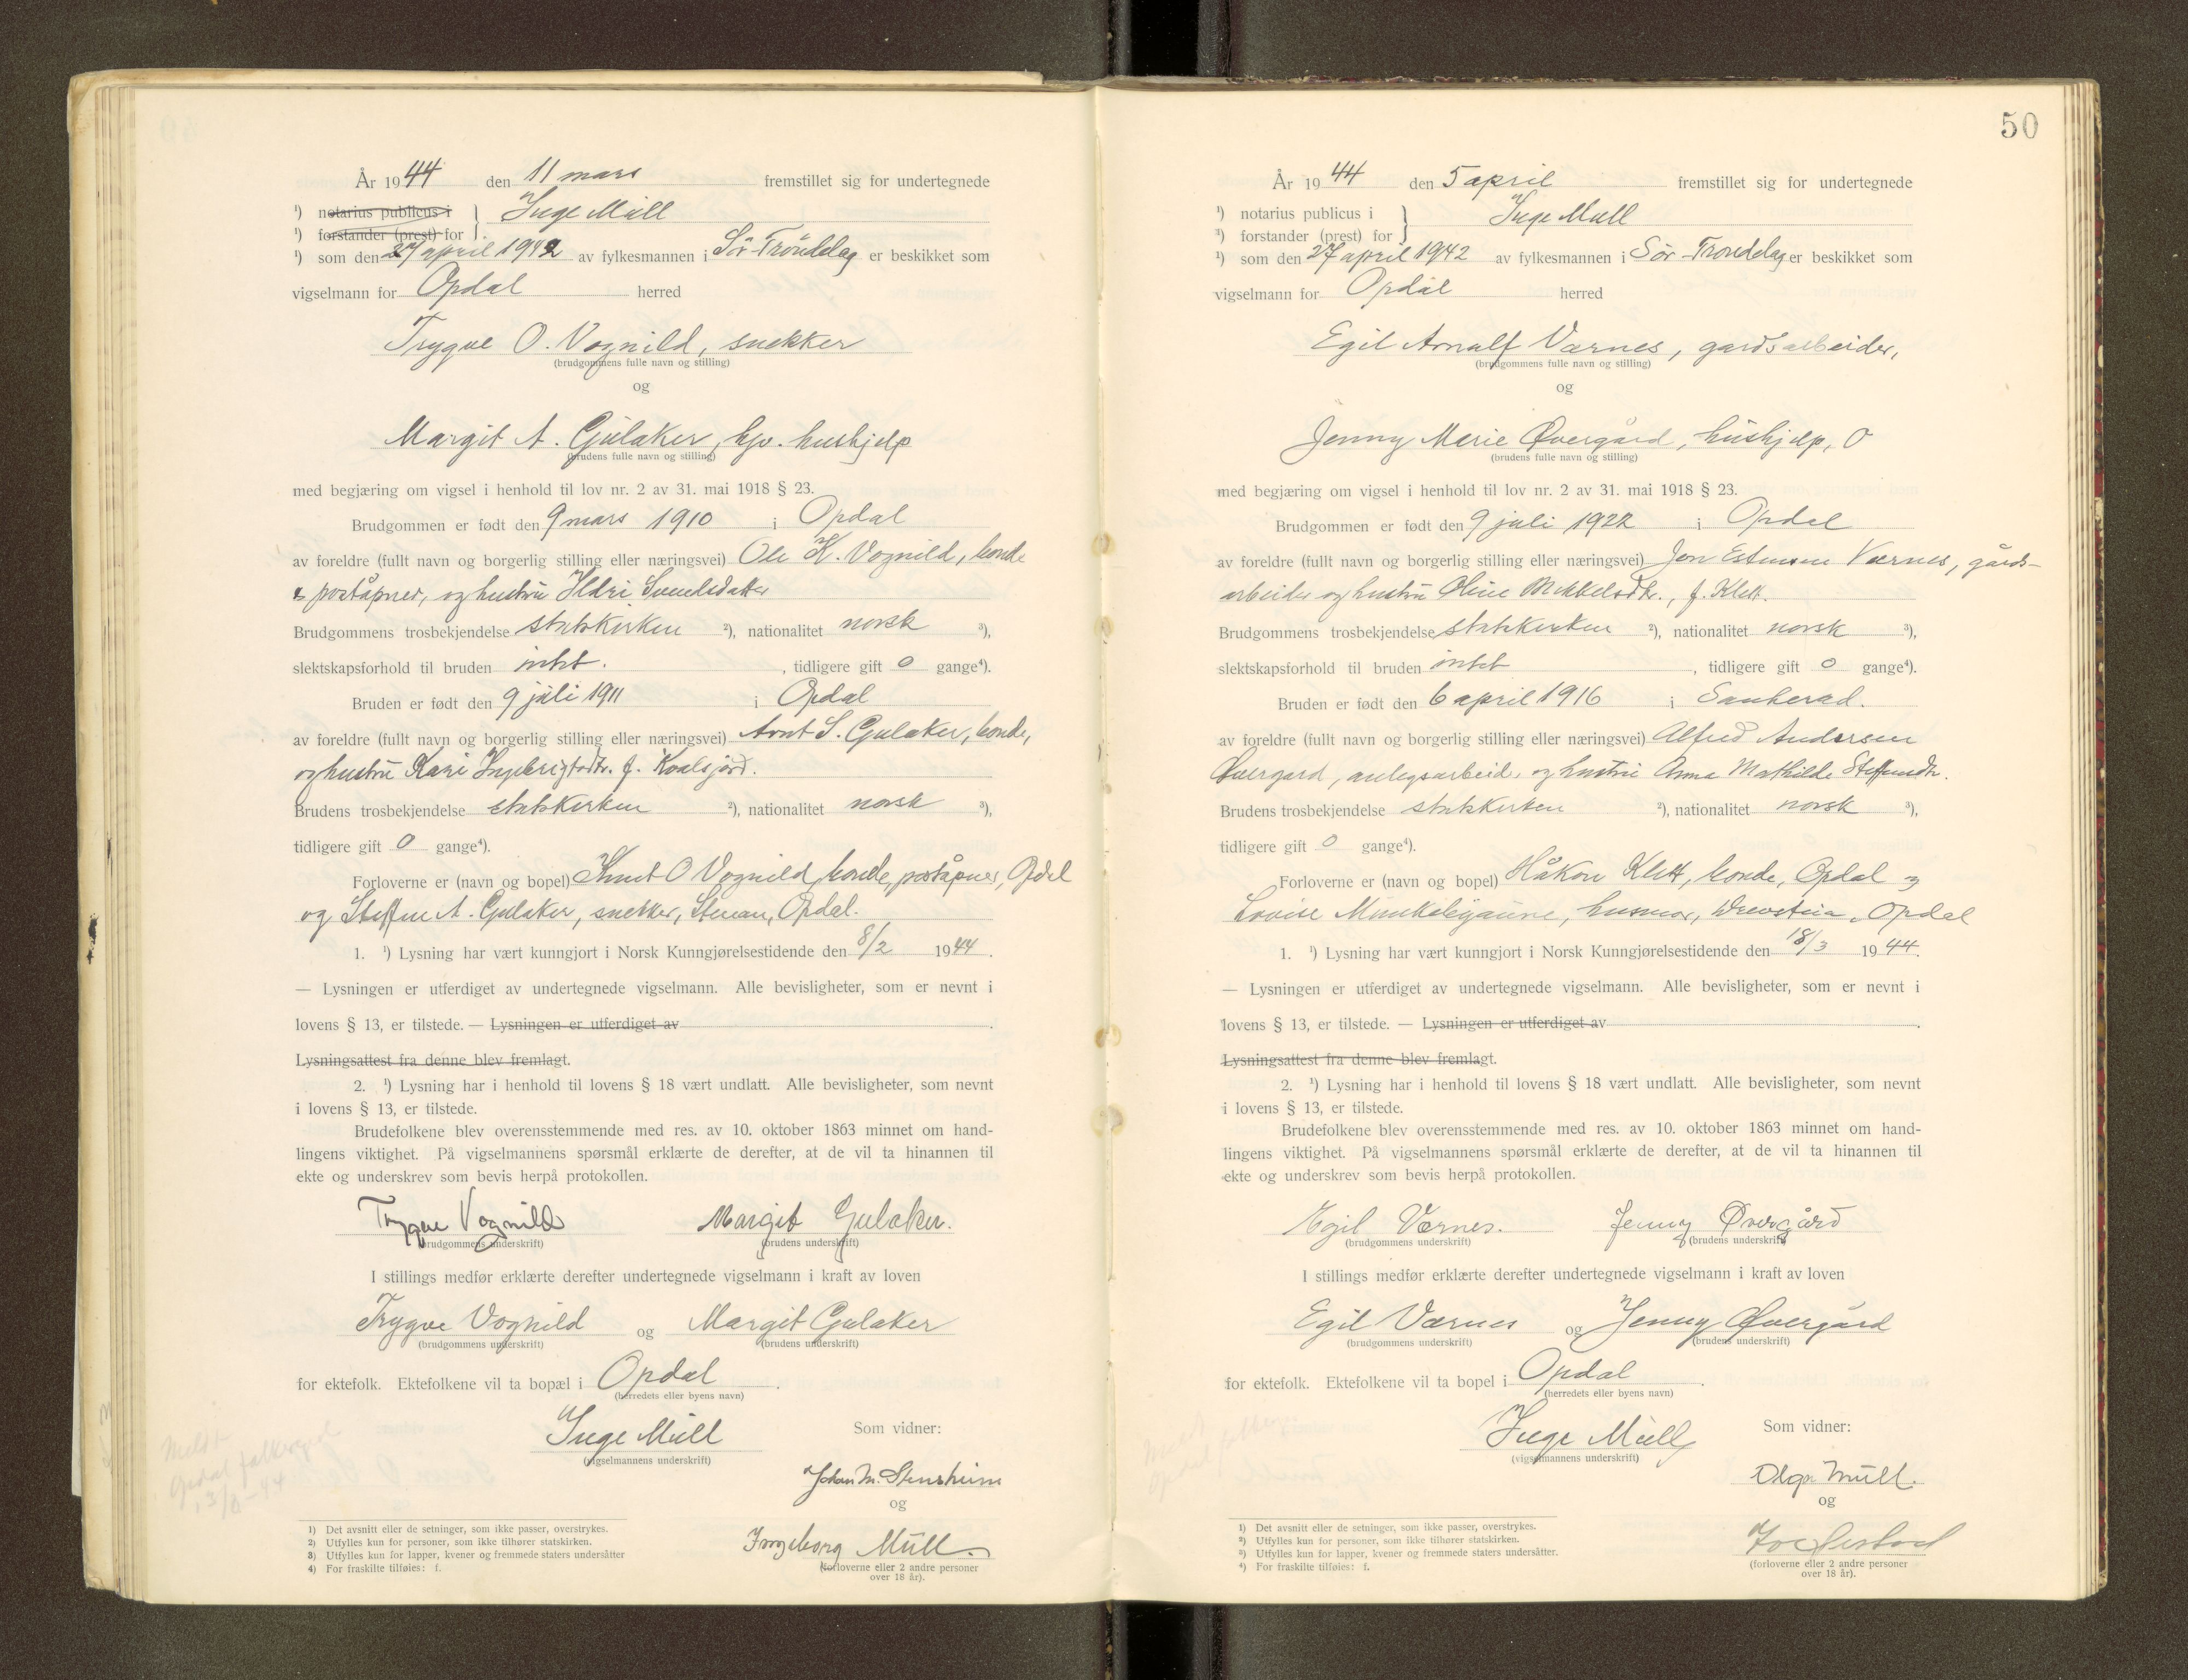 År 1944 den 11 mars fremstillet sig for undertegnede
¹) notarius publicus i } Inge Mull
¹) forstander (prest) for
¹) som den 27 april 1942 av fylkesmannen i Sör-Tröndelag er beskikket som
vigselmann for Opdal herred
Trygve O. Vognild, snekker
(brudgommens fulle navn og stilling)
og
Margit A. Gulaker, hjv. hushjelp
(brudens fulle navn og stilling)
med begjæring om vigsel i henhold til lov nr. 2 av 31. mai 1918 § 23.
Brudgommen er født den 9 mars 1910 i Opdal
av foreldre (fullt navn og borgerlig stilling eller næringsvei) Ole K. Vognild, bonde
& poståpner, og hustru Ildri Svendsdatter
Brudgommens trosbekjendelse statskirken ²), nationalitet norsk ³),
slektskapsforhold til bruden intet. , tidligere gift 0 gange⁴).
Bruden er født den 9 juli 1911 i Opdal
av foreldre (fullt navn og borgerlig stilling eller næringsvei) Arnt S. Gulaker, bonde,
og hustru Kari Ingebrigtsdtr. f.
Brudens trosbekjendelse statskirken ²), nationalitet norsk ³),
tidligere gift 0 gange⁴).
Forloverne er (navn og bopel) Knut O Vognild, bonde, poståpner, Opdal
og Steffen A. Gulaker, snekker, Stenan, Opdal.
1. ¹) Lysning har vært kunngjort i Norsk Kunngjørelsestidende den 8/2 1944.
— Lysningen er utferdiget av undertegnede vigselmann. Alle bevisligheter, som er nevnt i
lovens § 13, er tilstede. — Lysningen er utferdiget av .
Lysningsattest fra denne blev fremlagt.
2. ¹) Lysning har i henhold til lovens § 18 vært undlatt. Alle bevisligheter, som nevnt
i lovens § 13, er tilstede.
Brudefolkene blev overensstemmende med res. av 10. oktober 1863 minnet om hand-
lingens viktighet. På vigselmannens spørsmål erklærte de derefter, at de vil ta hinannen til
ekte og underskrev som bevis herpå protokollen.
Trygve Vognild Margit Gulaker.
(brudgommens underskrift) (brudens underskrift)
I stillings medfør erklærte derefter undertegnede vigselmann i kraft av loven
Trygve Vognild og Margit Gulaker
(brudgommens underskrift) (brudens underskrift)
for ektefolk. Ektefolkene vil ta bopæl i Opdal .
(herredets eller byens navn)
Inge Mull Som vidner:
(vigselmannens underskrift)
Johan M. Stensheim
og
Ingeborg Mull.
(forloverne eller 2 andre personer
over 18 år).
Meldt
Opdal folkereg.
1) Det avsnitt eller de setninger, som ikke passer, overstrykes.
2) Utfylles kun for personer, som ikke tilhører statskirken.
3) Utfylles kun for lapper, kvener og fremmede staters undersåtter
4) For fraskilte tilføies: f.
50
År 1944 den 5 april fremstillet sig for undertegnede
¹) notarius publicus i } Inge Mull
¹) forstander (prest) for
¹) som den 27 april 1942 av fylkesmannen i Sör-Tröndelag er beskikket som
vigselmann for Opdal herred
Egil ArnulfVærnes, gardsarbeider,
(brudgommens fulle navn og stilling)
og
Jenny Marie Øvergård, hushjelp, O
(brudens fulle navn og stilling)
med begjæring om vigsel i henhold til lov nr. 2 av 31. mai 1918 § 23.
Brudgommen er født den 9 juli 1922 i Opdal
av foreldre (fullt navn og borgerlig stilling eller næringsvei) Jon Estensen Værnes, gårds-
arbeider og hustru Oline Mikkelsdtr., f. Klett.
Brudgommens trosbekjendelse statskirken ²), nationalitet norsk ³),
slektskapsforhold til bruden intet , tidligere gift 0 gange⁴).
Bruden er født den 6 april 1916 i Sauherad.
av foreldre (fullt navn og borgerlig stilling eller næringsvei) Alfred Andersen
Øvergard, anlegsarbeid. og hustru Anna Mathilde Steffensdtr.
Brudens trosbekjendelse statskirken ²), nationalitet norsk ³),
tidligere gift 0 gange⁴).
Forloverne er (navn og bopel) Håkon Klett, bonde, Opdal og
Lovise husmor, Opdal
1. ¹) Lysning har vært kunngjort i Norsk Kunngjørelsestidende den 18/3 1944.
— Lysningen er utferdiget av undertegnede vigselmann. Alle bevisligheter, som er nevnt i
lovens § 13, er tilstede. — Lysningen er utferdiget av .
Lysningsattest fra denne blev fremlagt.
2. ¹) Lysning har i henhold til lovens § 18 vært undlatt. Alle bevisligheter, som nevnt
i lovens § 13, er tilstede.
Brudefolkene blev overensstemmende med res. av 10. oktober 1863 minnet om hand-
lingens viktighet. På vigselmannens spørsmål erklærte de derefter, at de vil ta hinannen til
ekte og underskrev som bevis herpå protokollen.
Egil Værnes. Jenny Øvergård
(brudgommens underskrift) (brudens underskrift)
I stillings medfør erklærte derefter undertegnede vigselmann i kraft av loven
Egil Værnes og Jenny Øvergård
(brudgommens underskrift) (brudens underskrift)
for ektefolk. Ektefolkene vil ta bopel i Opdal .
(herredets eller byens navn)
Inge Mull Som vidner:
(vigselmannens underskrift)
Olga Mull.
og
(forloverne eller 2 andre personer
over 18 år).
1) Det avsnitt eller de setninger, som ikke passer, overstrykes.
²) Utfylles kun for personer, som ikke tilhører statskirken.
³) Utfylles kun for lapper, kvener og fremmede staters undersåtter.
⁴) For fraskilte tilføies: f.